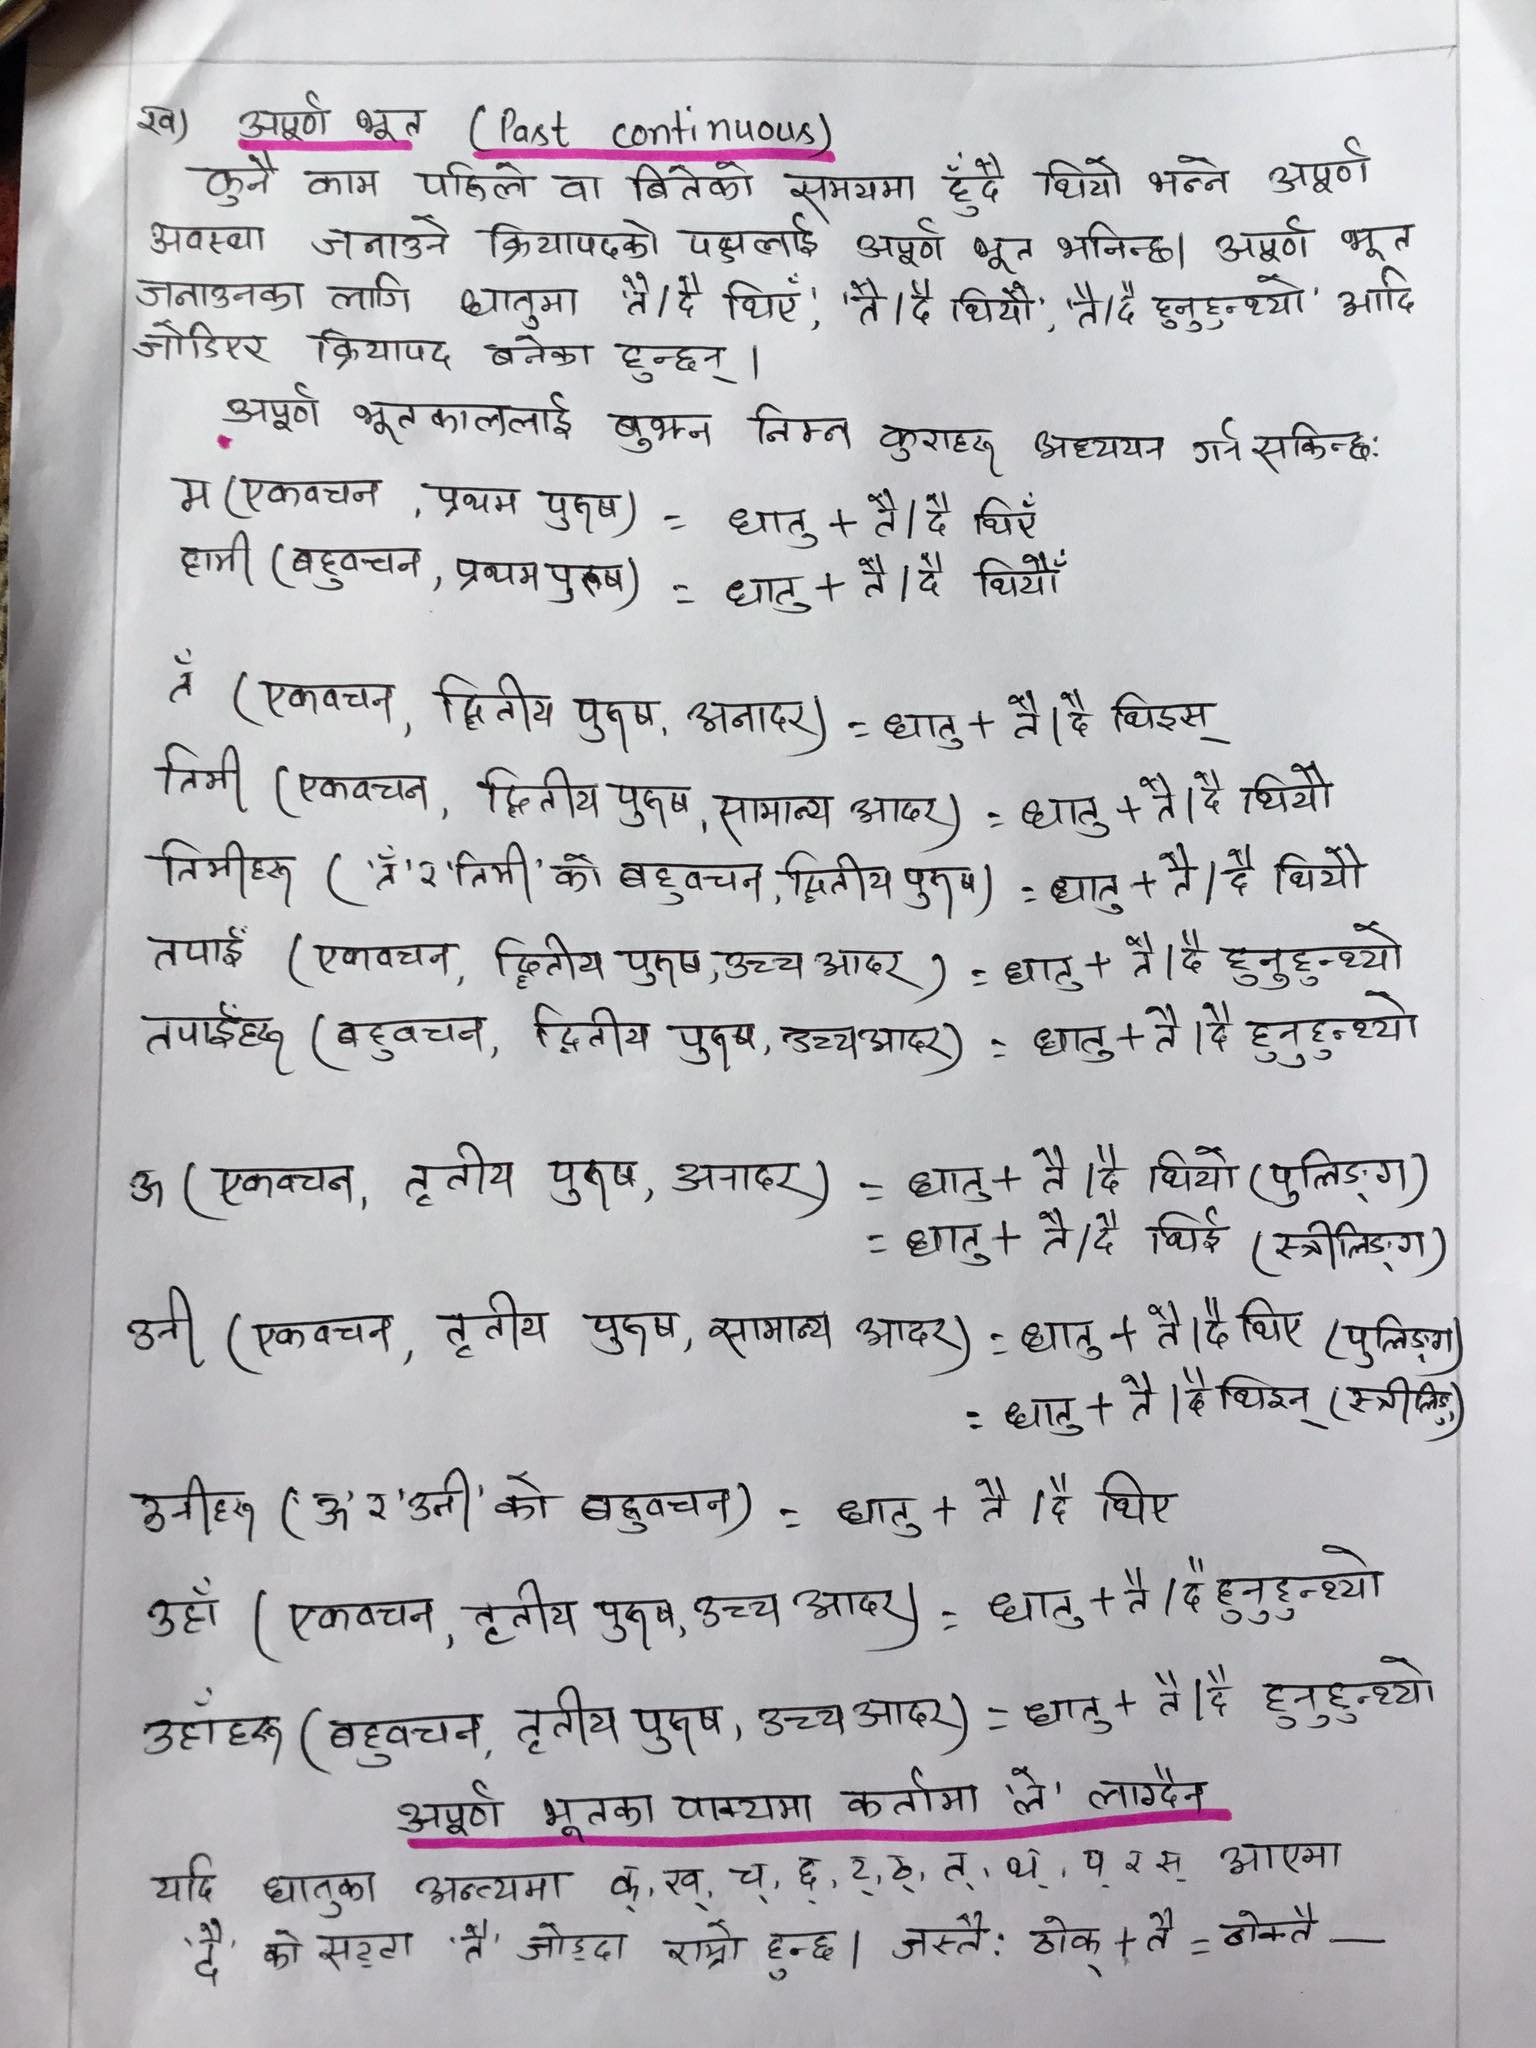 ख) अपूर्ण भूत (Past continuous)
कुनै काम पहिले वा बितेको समयमा हुँदै थियो भन्ने अपूर्ण
अवस्था जनाउने क्रियापदको पक्षलाई अपूर्ण भूत भनिन्छ। अपूर्ण भूत
जनाउनका लागि धातुमा 'तै/दै थिएँ', 'तै/दै थियौ', 'तै/दै हुनुहुन्थ्यो' आदि
जोडिएर क्रियापद बनेका हुन्छन्।
अपूर्ण भूतकाललाई बुझ्न निम्न कुराहरू अध्ययन गर्न सकिन्छ:
म (एकवचन, प्रथम पुरुष) = धातु + तै/दै थिएँ
हामी (बहुवचन, प्रथम पुरुष) = धातु + तै/दै थियौँ
तँ (एकवचन, द्वितीय पुरुष, अनादर) = धातु + तै/दै थिइस्
तिमी (एकवचन, द्वितीय पुरुष, सामान्य आदर) = धातु + तै/दै थियौ
तिमीहरू ('तँ' र 'तिमी' को बहुवचन, द्वितीय पुरुष) = धातु + तै/दै थियौ
तपाईं (एकवचन, द्वितीय पुरुष, उच्च आदर) = धातु + तै/दै हुनुहुन्थ्यो
तपाईंहरू (बहुवचन, द्वितीय पुरुष, उच्च आदर) = धातु + तै/दै हुनुहुन्थ्यो
ऊ (एकवचन, तृतीय पुरुष, अनादर) = धातु + तै/दै थियो (पुलिङ्ग)
= धातु + तै/दै थिई (स्त्रीलिङ्ग)
उनी (एकवचन, तृतीय पुरुष, सामान्य आदर) = धातु + तै/दै थिए (पुलिङ्ग)
= धातु + तै/दै थिइन् (स्त्रीलिङ्ग)
उनीहरू ('ऊ' र 'उनी' को बहुवचन) = धातु + तै/दै थिए
उहाँ (एकवचन, तृतीय पुरुष, उच्च आदर) = धातु + तै/दै हुनुहुन्थ्यो
उहाँहरू (बहुवचन, तृतीय पुरुष, उच्च आदर) = धातु + तै/दै हुनुहुन्थ्यो
अपूर्ण भूतका वाक्यमा कर्तामा 'ले' लाग्दैन
यदि धातुका अन्त्यमा क्, ख्, च्, छ्, ट्, ठ्, त्, थ्, प् र स् आएमा
'दै' को सट्टा 'तै' जोड्दा राम्रो हुन्छ। जस्तै: ठोक् + तै = ठोक्तै —